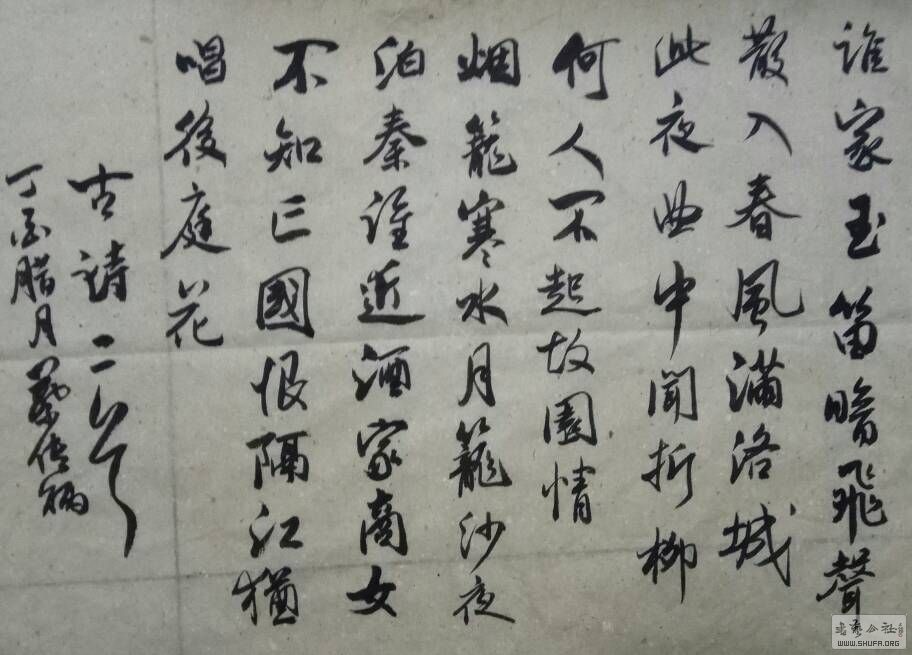 誰家玉笛暗飛聲
散入春風滿洛城
此夜曲中聞折柳
何人不起故園情
烟籠寒水月籠沙夜
泊秦誰近酒家商女
不知亡國恨隔江猶
唱後庭花
古詩二首
丁酉腊月
书艺公社
WWW.SHUFA.ORG